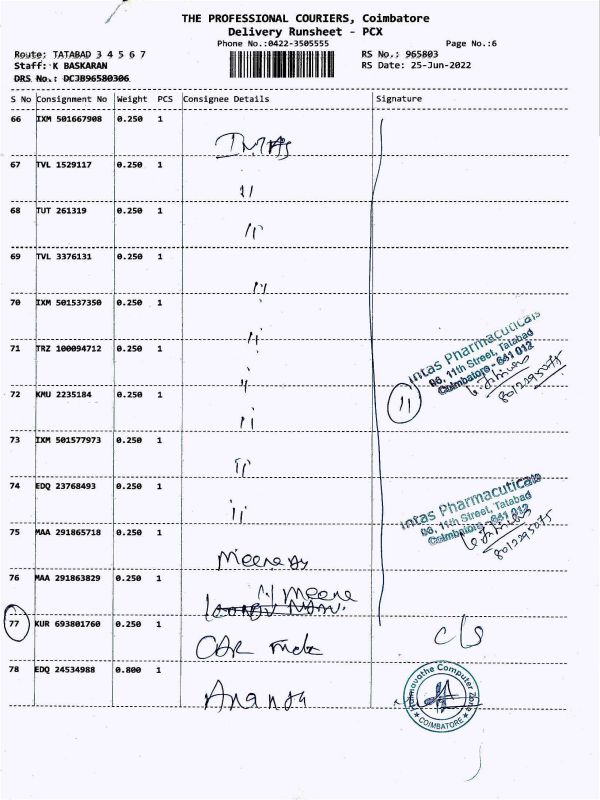 THE PROFESSIONAL COURIERS, Coimbatore
Delivery Runsheet - PCX
Phone No.:0422-3505555 Page No.:6
Route: TATABAD 3 4 5 6 7 RS No.: 965803
Staff: K BASKARAN RS Date: 25-Jun-2022
DRS No.: DCJB96580306
S No Consignment No Weight PCS Consignee Details Signature
66 IXM 501667908 0.250 1
67 TVL 1529117 0.250 1 11
68 TUT 261319 0.250 1 11
69 TVL 3376131 0.250 1 11
70 IXM 501537350 0.250 1 11
Intas Pharmaceuticals
96, 11th Street, Tatabad
Coimbatore - 641 012
71 TRZ 100094712 0.250 1 11
72 KMU 2235184 0.250 1 11 11
73 IXM 501577973 0.250 1 11
74 EDQ 23768493 0.250 1 11
Intas Pharmaceuticals
96, 11th Street, Tatabad
Coimbatore - 641 012
75 MAA 291865718 0.250 1
76 MAA 291863829 0.250 1 11 Meene
77 KUR 693801760 0.250 1
78 EDQ 24534988 0.800 1
COIMBATORE